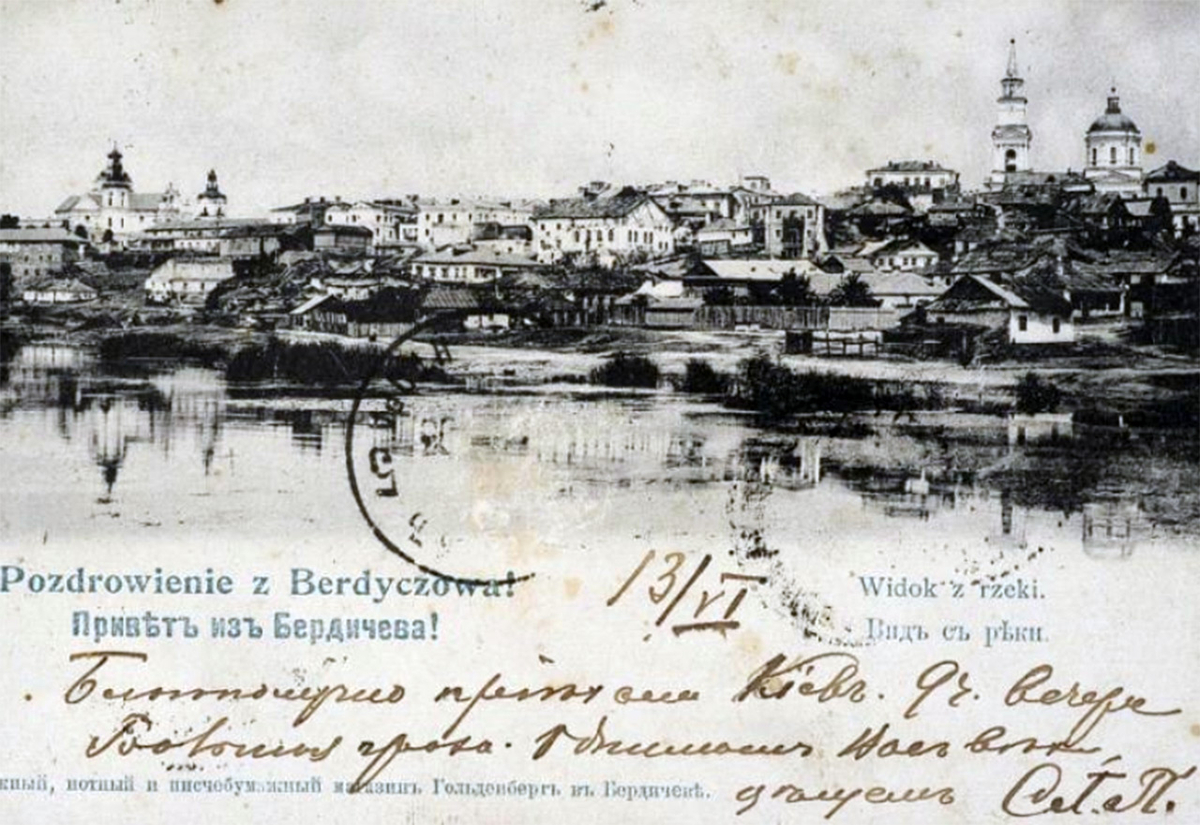 Pozdrowienie z Berdyczowa!
Привѣтъ изъ Бердичева!
13/VI
Widok z rzeki.
Видъ съ рѣки.
Благополучно Кіевъ. 9 ч. вечера
гроза. Обнимаемъ
жный, нотный и писчебумажный магазинъ Гольденбергъ въ Бердичевѣ.
цѣлуемъ